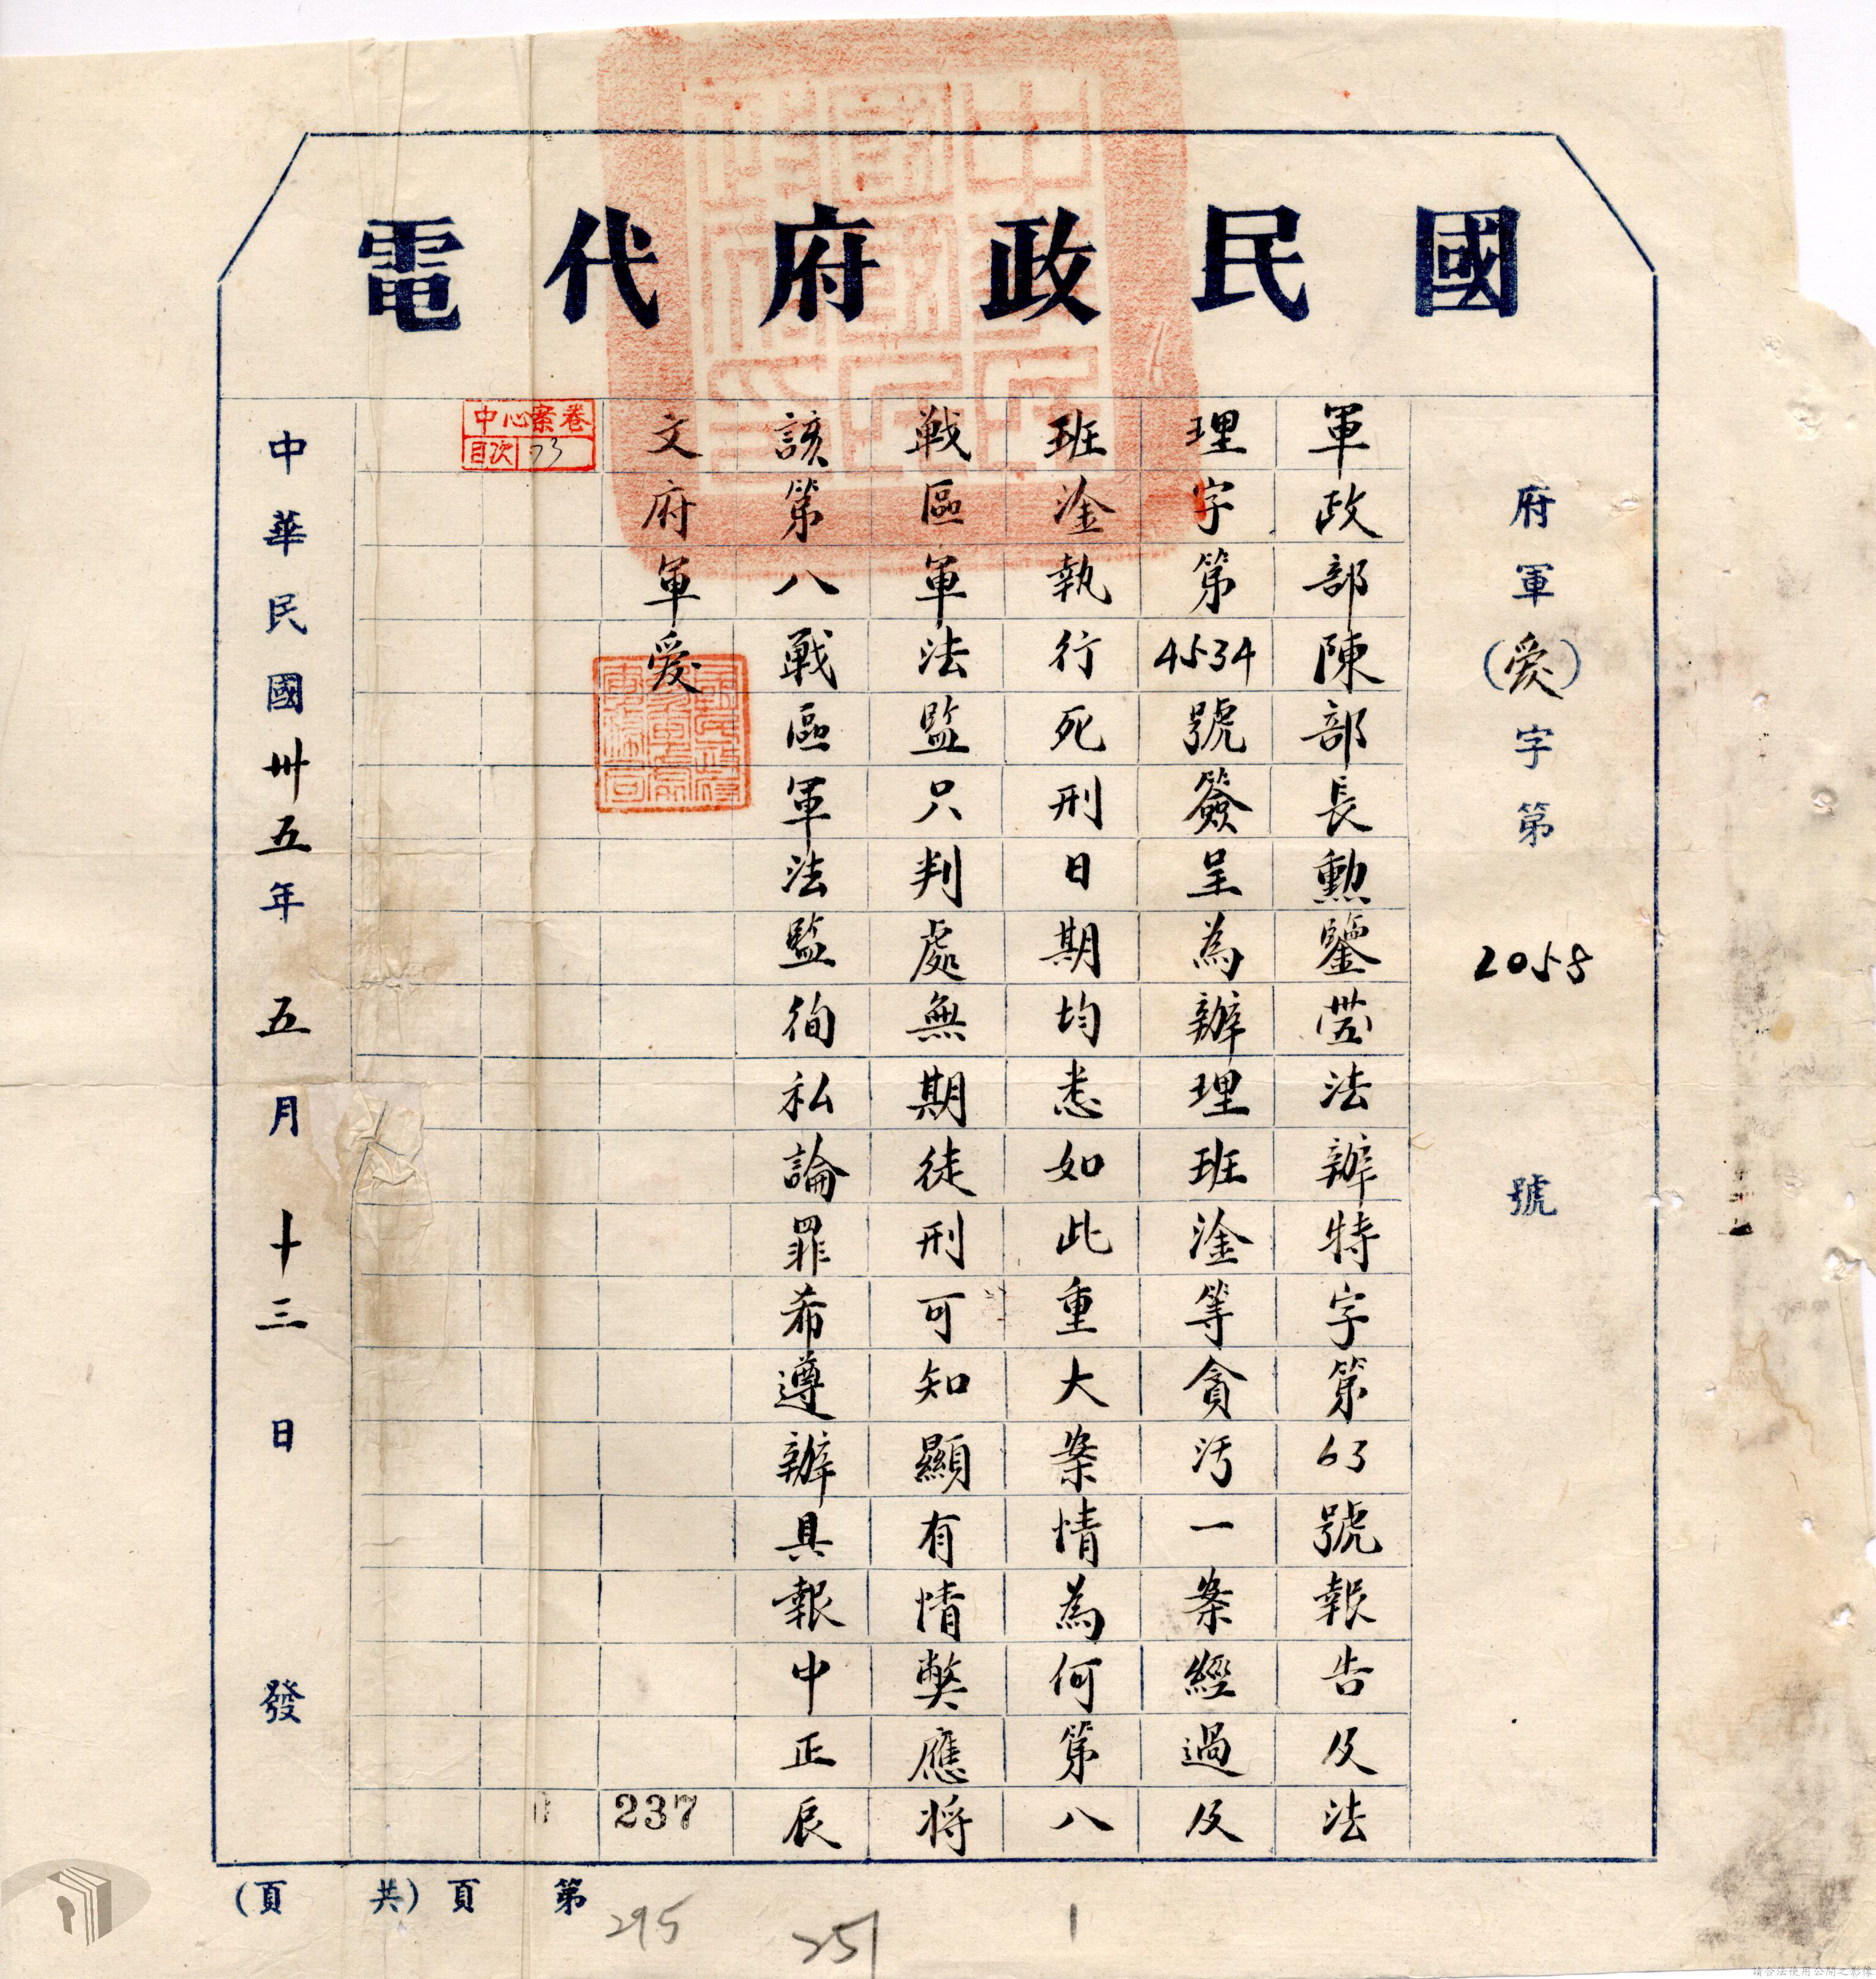 國民政府代電
府軍(愛)字第2058號
軍政部陳部長勳鑒法辦特字第63號報告及法
理字第4534號簽呈為辦理班淦等貪污一案經過及
班淦執行死刑日期均悉如此重大案情為何第八
戰區軍法監只判處無期徒刑可知顯有情弊應將
該第八戰區軍法監徇私論罪希遵辦具報中正辰
文府軍愛
中心案卷
目次 73
237
中華民國卅五年五月十三日發
第 頁(共 頁)
295
251
1
請合法使用公開之影像